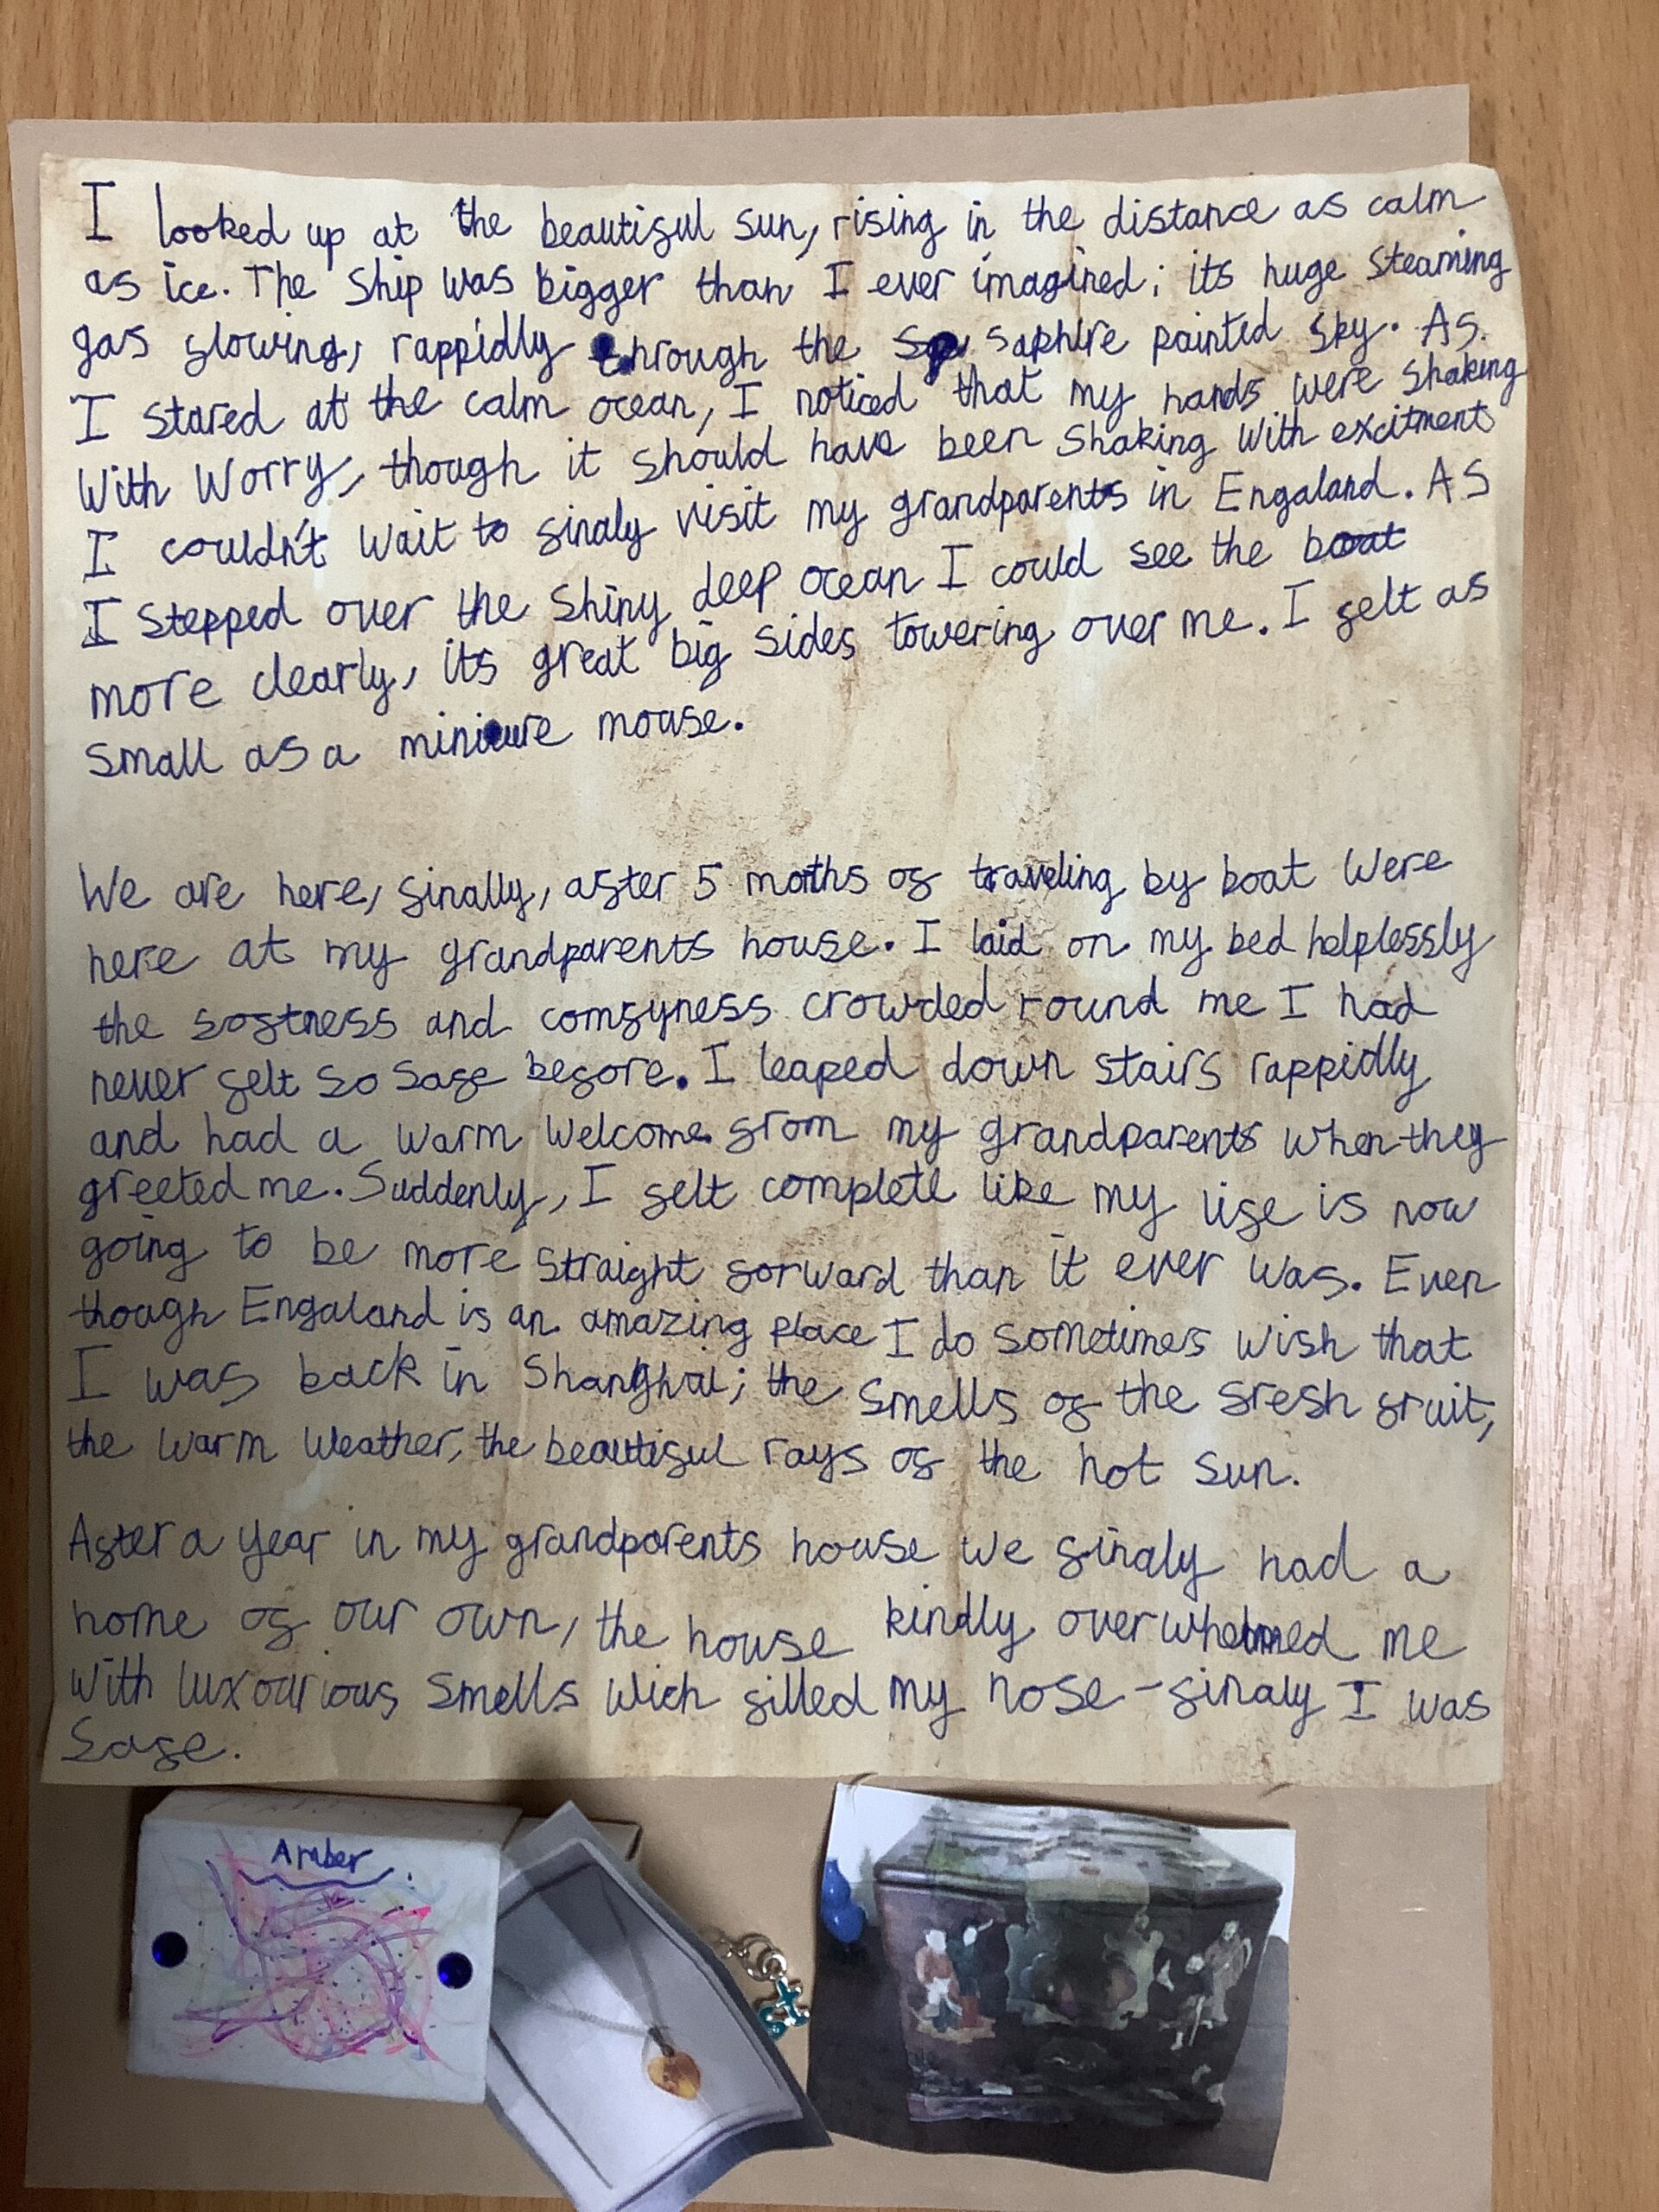 I looked up at the beautiful sun, rising in the distance as calm
as ice. The ship was bigger than I ever imagined; its huge steaming
gas flowing, rappidly through the saphire painted sky. As
I stared at the calm ocean, I noticed that my hands were shaking
with worry, though it should have been shaking with excitment
I couldn't wait to finaly visit my grandparents in Engaland. As
I stepped over the shiny deep ocean I could see the boat
more clearly, its great big sides towering over me. I felt as
small as a mouse.
We are here, finally, after 5 months of traveling by boat were
here at my grandparents house. I laid on my bed helplessly
the softness and comfyness crowded round me I had
never felt so safe before. I leaped down stairs rappidly
and had a warm welcome from my grandparents when they
greeted me. Suddenly, I felt complete like my life is now
going to be more straight forward than it ever was. Even
though Engaland is an amazing place I do sometimes wish that
I was back in Shanghai; the smells of the fresh fruit,
the warm weather, the beautiful rays of the hot sun.
After a year in my grandparents house we finaly had a
home of our own, the house kindly overwhelmed me
with luxourious smells wich filled my nose - finaly I was
safe.
Amber